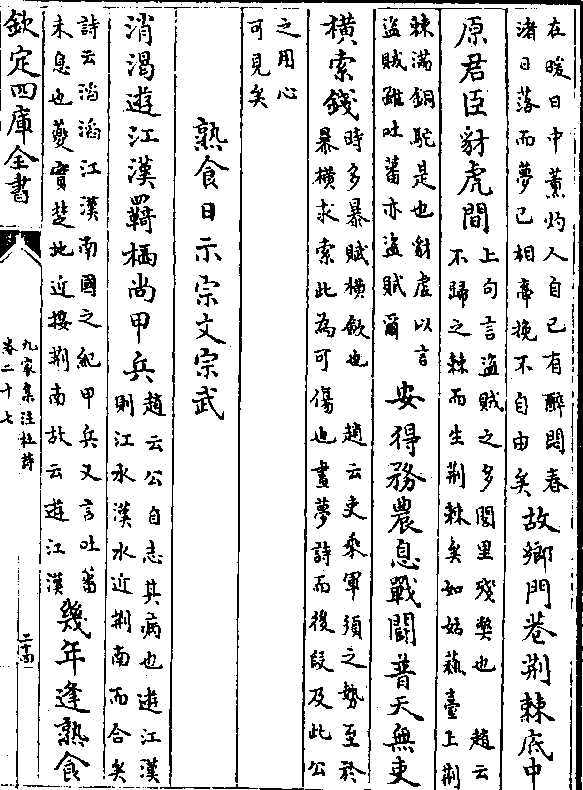 在暖日中薰灼人自已有醉悶春
渚日落而夢已相牽挽不自由矣
故鄉門巷荆棘底中
原君臣豺虎間
上句言盜賊之多閭里殘弊也 趙云
不歸之棘而生荆棘矣如姑蘇臺上荆
棘滿銅駝是也豺虎以言
盜賊雖吐蕃亦盜賊爾
安得務農息戰鬬普天無吏
橫索錢
時多暴賦橫歛也 趙云吏乘軍須之勢至於
暴橫求索此為可傷也晝夢詩而後段及此公
之用心
可見矣
熟食日示宗文宗武
消渴遊江漢羈栖尚甲兵
趙云公自志其病也 遊江漢
則江水漢水近荆南而合矣
詩云滔滔江漢南國之紀甲兵又言吐蕃
未息也夔實楚地近接荆南故云遊江漢
幾年逢熟食
欽定四庫全書
九家集注杜詩
卷二十七
二十四